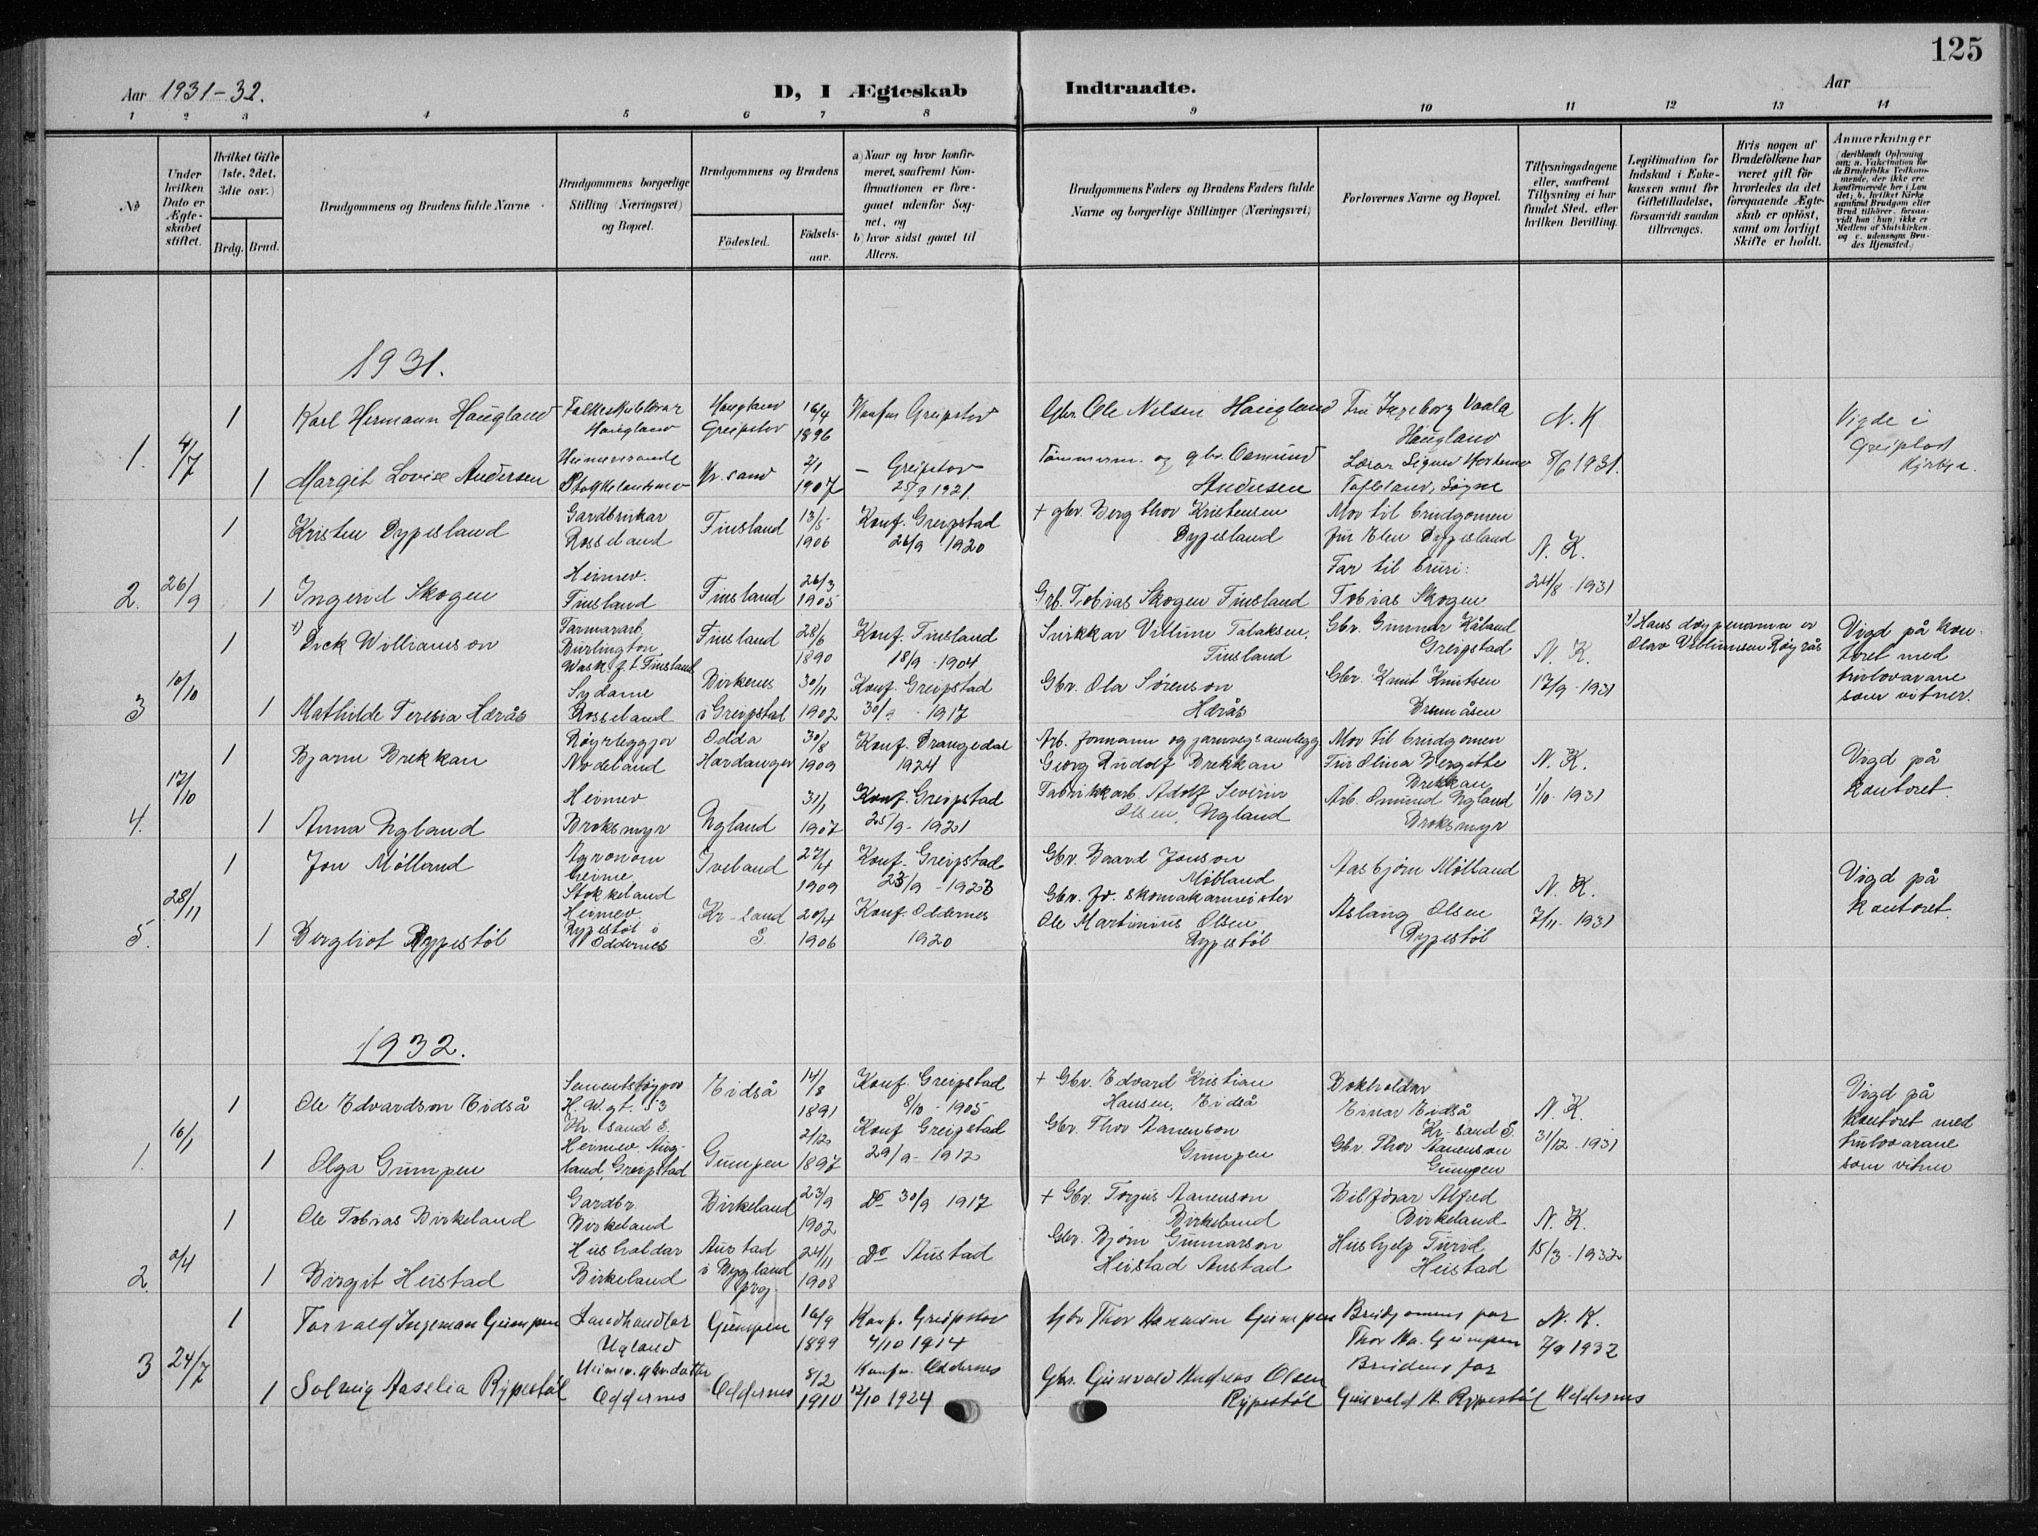 125
Aar 1931-32. D, I Ægteskab Indtraadte. Aar
1 2 3 4 5 6 7 8 9 10 11 12 13 14
No
Under hvilken Dato er Ægteskabet stiftet.
Hvilket Gifte (1ste, 2det, 3die osv.)
Brdg. Brud.
Brudgommens og Brudens fulde Navne
Brudgommens borgerlige Stilling (Næringsvei) og Bopæl.
Brudgommens og Brudens
Födested. Födselsaar.
a) Naar og hvor konfirmeret, saafremt Konfirmationen er foregaaet udenfor Sognet, og
b) hvor sidst gaaet til Alters.
Brudgommens Faders og Brudens Faders fulde Navne og borgerlige Stillinger (Næringsvei)
Forlovernes Navne og Bopæl.
Tillysningsdagene eller, saafremt Tillysning ei har fundet Sted, efter hvilken Bevilling.
Legitimation for Indskud i Enkekassen samt for Giftetilladelse, forsaavidt saadan tiltrænges.
Hvis nogen af Brudefolkene har været gift för hvorledes da det foregaaende Ægteskab er oplöst, samt om lovligt Skifte er holdt.
Anmærkninger (deriblandt Oplysning om: a. Vakcination för da Brudefolks Vedkommende, der ikke ere konfirmerede her i Landet; b. hvilket Kirkesamfund Brudgom eller Brud tilhörer, forsaavidt han (hun) ikke er Medlem af Statskirken, og c. udensogns Brudes Hjemsted.)
1931.
1. 4/7
1 Karl Hermann Haugland
Folkeskulelærar Haugland
Haugland Greipstov
16/4 1896
Konfm Greipstov
Gbr. Ole Nilsen Haugland
Fru Ingeborg Vaala Haugland
N. K
8/6 1931.
Vigde i Greipstad Kyrkje.
1 Margit Lovise Andersen
Heimeverande
Kr. sand
2/1 1907
- Greipstov 25/9 1921.
Tømmerm. og gbr. Osmund Andersen
Lærar Sigurd
Søgne
1 Kristen Dypesland
Gardbrukar Rosseland
Finsland
13/5 1906
Konf. Greipstad 26/9 - 1920
+ gbr. Berg thor Kristensen Dypesland
Mor til brudgomen fru Elen Dypesland
N. K.
24/8 - 1931
2. 26/9
1 Ingerid Skogen
Heimev. Finsland
Finsland
26/3 1905
Grb. Tobias Skogen Finsland
Far til bruri: Tobias Skogen
1) Dick Williamson
1
Farmararb. Burlington Wash. f. t. Finsland
Finsland
28/6 1890
Konf. Finsland 18/9 - 1904
Snikkar Villum Talaksen, Finsland
Gbr. Gunnar Håland Greipstad
N. K.
17/9 - 1931
1) Hans døypenamn er Olav Villumsen Røyrås
Vigd på kontoret med truloverane som vitner.
3 10/10
1 Mathilde Teresia Herås
Sydame Rosseland
Birkenes i Greipstad
30/11 1902
Konf. Greipstad 30/9 - 1917
Gbr. Ola Sørenson Herås
Gbr. Knut Knutsen Brennåsen
1 Bjarne Brekkan
Røyrleggjar Nodeland
Odda Hardanger
30/8 1909
Konf. Drangedal 1924
Arb. formann og jarnvegsanlegg Georg Rudolf Brekkan
Mor til brudgomen Fru Olina Bergitte Brekkan
N. K.
1/10 - 1931
Vigd på kontoret.
4. 17/10
1 Anna Ugland
Heimev Broksmyr
Ugland
31/1 1907
Konf. Greipstad 25/9 - 1921
Fabrikkarb. Adolf Severin Olsen, Ugland
Arb. Omund Ugland Broksmyr
1 Jon Mølland
Agronom heime Stokkeland
Iveland
27/4 1909
Konf. Greipstad 23/9 - 1923
Gbr. Baard Jonson Mølland
Aasbjørn Mølland
N. K.
7/11 - 1931
Vigd på kontoret.
5. 28/11
1 Bergliot Rypestøl
Heimev. Rypestøl i Oddernes
Kr-sand S.
20/4 1906
Konf. Oddernes 1920
Gbr. fv. skomakarmeister Ole Martinius Olsen Rypestøl
Aslaug Olsen Rypestøl
1932.
1 Ole Edvardson Eidså
Sementstøypar H. W. gt. 53 Kr. sand S.
Eidså
14/8 1891
Konf. Greipstad 8/10 - 1905
+ Gbr. Edvard Kristian Hansen, Eidså
Bokholdar Einar Eidså Kr-sand S.
N. K.
31/12 - 1931
Vigd på kontoret med truloverane som vitner
1. 16/1
1 Olga Gumpen
Heimev. Haugland, Greipstad
Gumpen
2/12 1897
Konf Greipstad 29/9 - 1912
Gbr. Thor Aanenson Gumpen
Gbr Thor Aanenson Gumpen
1 Ole Tobias Birkeland
Gardbr. Birkeland
Birkeland
23/9 1902
Do 30/9 1917
+ Gbr. Torjus Aanenson Birkeland
Bilförar Alfred Birkeland
N. K.
15/3 - 1932
2. 2/4
1 Birgit Heistad
Husholdar Birkeland
Austad i Bygland prg.
24/11 1908
Do Austad
Gbr. Bjørn Gunnarson Heistad Austad
Hushjelp Turid Heistad
1 Torvald Ingeman Gumpen
Landhandlar Ugland
Gumpen
16/9 1899
Konf. Greipstov 4/10 1914
Gbr Thor Aanensen Gumpen
Brudgomens far Thor Aa. Gumpen
N. K.
7/9 1932
3 24/7
1 Solveig Aaselia Rypestøl
Heimev. gbrdatter Oddernes
Oddernes
8/2 1910
Konfm. Oddernes 12/10 1924
Gbr. Gunvald Andreas Olsen Rypestøl
Brudens far Gunvald A. Rypestøl Oddernes